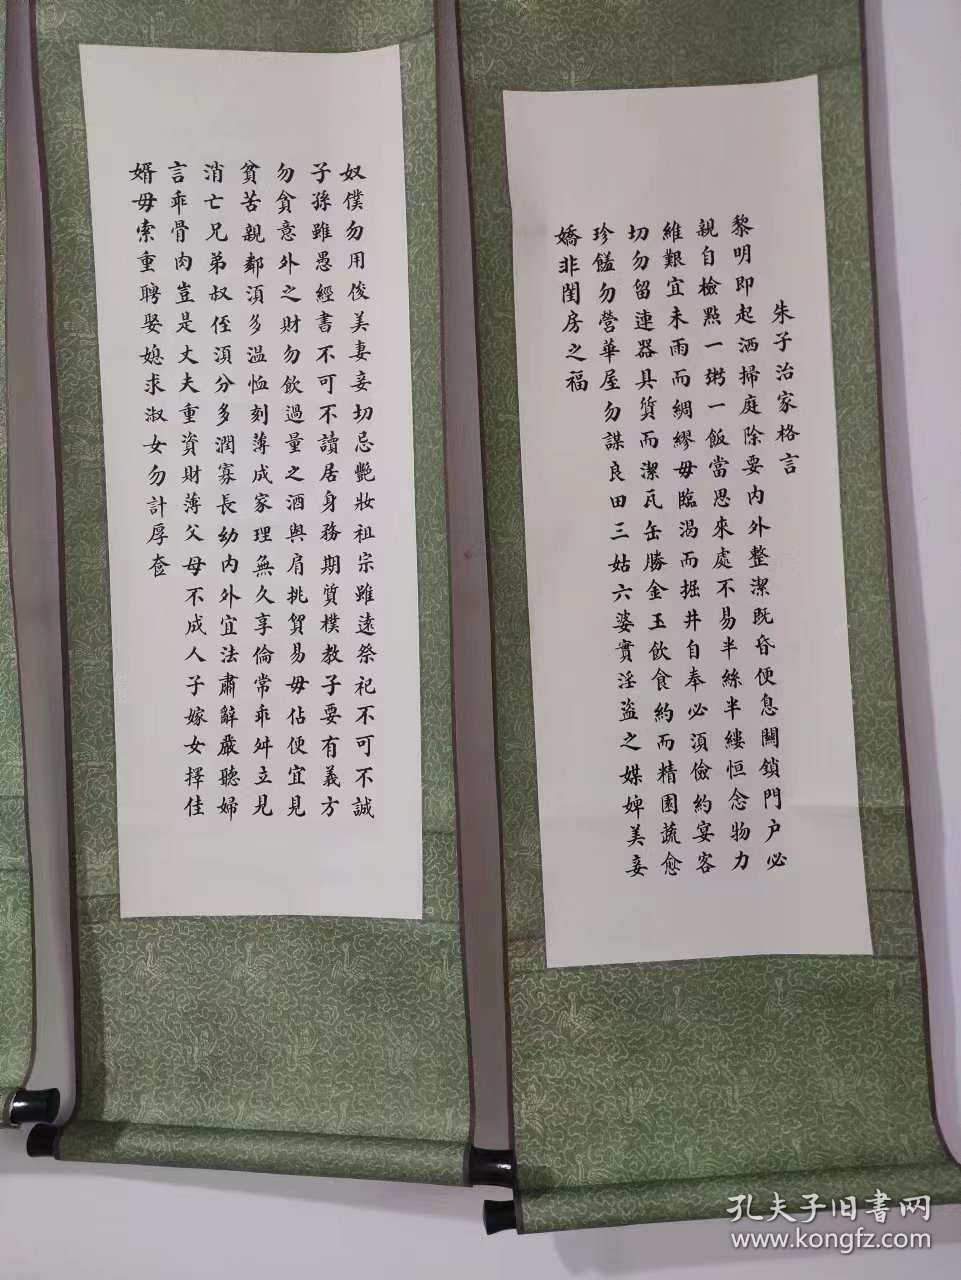 朱子治家格言
黎明即起洒掃庭除要內外整潔既昏便息關鎖門户必
親自檢點一粥一飯當思來處不易半絲半縷恒念物力
維艱宜未雨而綢繆毋臨渴而掘井自奉必須儉約宴客
切勿留連器具質而潔瓦缶勝金玉飲食約而精園蔬愈
珍饈勿營華屋勿謀良田三姑六婆實淫盜之媒婢美妾
嬌非閨房之福
奴僕勿用俊美妻妾切忌艷妝祖宗雖遠祭祀不可不誠
子孫雖愚經書不可不讀居身務期質樸教子要有義方
勿貪意外之財勿飲過量之酒與肩挑貿易毋佔便宜見
貧苦親鄰須多温恤刻薄成家理無久享倫常乖舛立見
消亡兄弟叔侄須分多潤寡長幼內外宜法肅辭嚴聽婦
言乖骨肉豈是丈夫重資財薄父母不成人子嫁女擇佳
婿毋索重聘娶媳求淑女勿計厚奩
孔夫子旧書网
www.kongfz.com